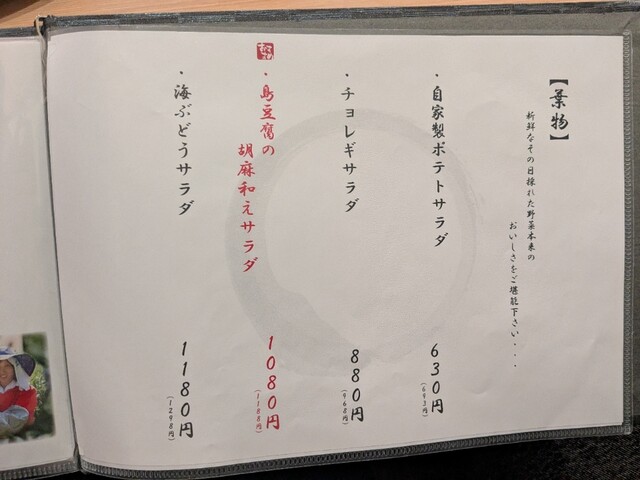 【葉物】
新鮮なその日採れた野菜本来の
おいしさをご堪能下さい・・・
・自家製ポテトサラダ
630円
(693円)
・チョレギサラダ
880円
(968円)
・島豆腐の
胡麻和えサラダ
1080円
(1188円)
・海ぶどうサラダ
1180円
(1298円)